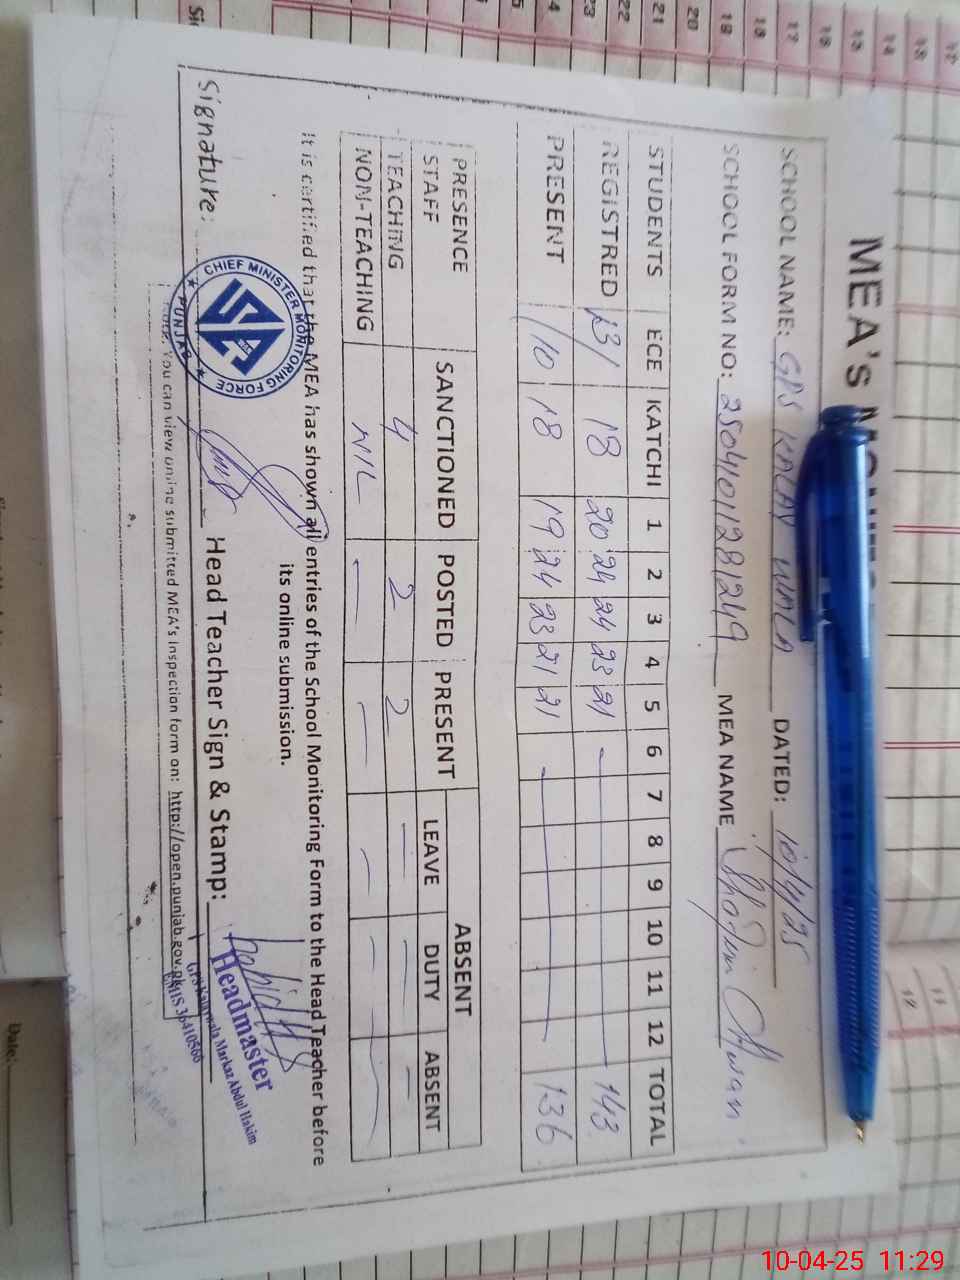 MEA's
SCHOOL NAME: GPS KALAY WALA DATED: 10/4/25
SCHOOL FORM NO: 2504101281249 MEA NAME
STUDENTS ECE KATCHI 1 2 3 4 5 6 7 8 9 10 11 12 TOTAL
REGISTRED 13 18 20 24 24 23 21 143
PRESENT 10 18 19 24 23 21 21 136
PRESENCE SANCTIONED POSTED PRESENT ABSENT
STAFF LEAVE DUTY ABSENT
TEACHING 4 2 2
NON-TEACHING NIL
It is certified that the MEA has shown all entries of the School Monitoring Form to the Head Teacher before
its online submission.
Signature: Head Teacher Sign & Stamp:
CHIEF MINISTER MONITORING FORCE
PUNJAB
Headmaster
GPS Kalaywala Markaz Abdul Hakim
EMIS 36410566
Note: You can view online submitted MEA's Inspection form on: http://open.punjab.gov.pk
Date:
10-04-25 11:29